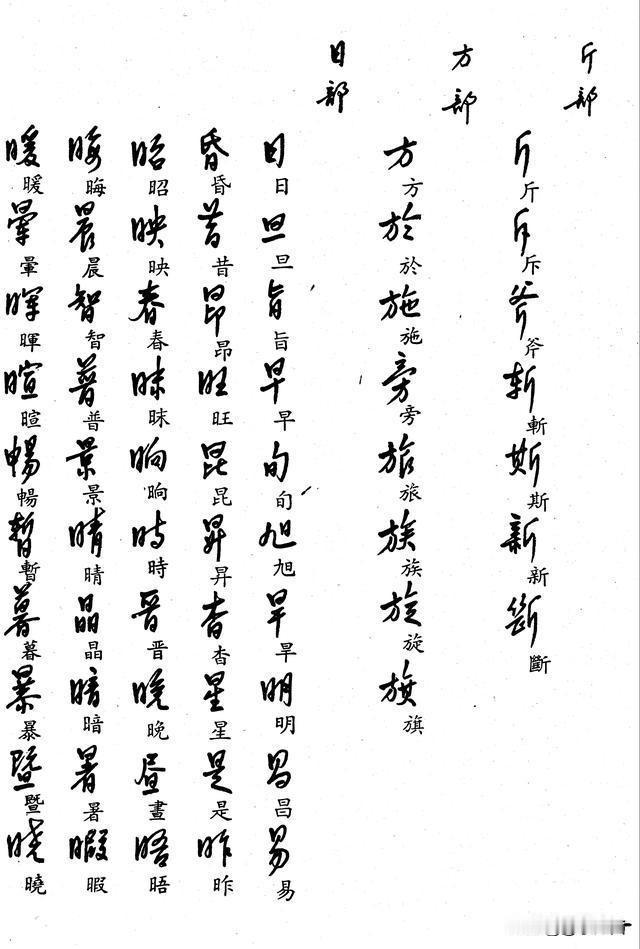 斤部
斤斥斧斬斯新斷
斤斥斧斬斯新斷
方部
方於施旁旅族旋旗
方於施旁旅族旋旗
日部
日旦旨早旬旭旱明昌易
日旦旨早旬旭旱明昌易
昏昔昂旺昆昇杳星是昨
昏昔昂旺昆昇杳星是昨
昭映春昧晌時晋晚晝晤
昭映春昧晌時晋晚晝晤
晦晨智普景晴晶暗暑暇
晦晨智普景晴晶暗暑暇
暖暈暉暄暢暫暮暴暨曉
暖暈暉暄暢暫暮暴暨曉